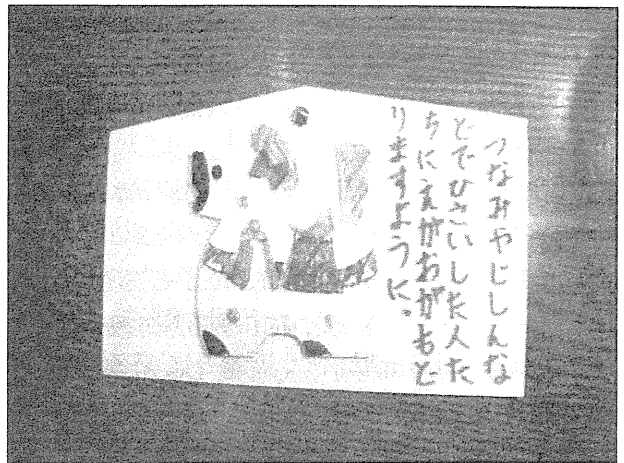 つなみやじしんな
どでひさいした人た
ちにえがおがもど
りますように。